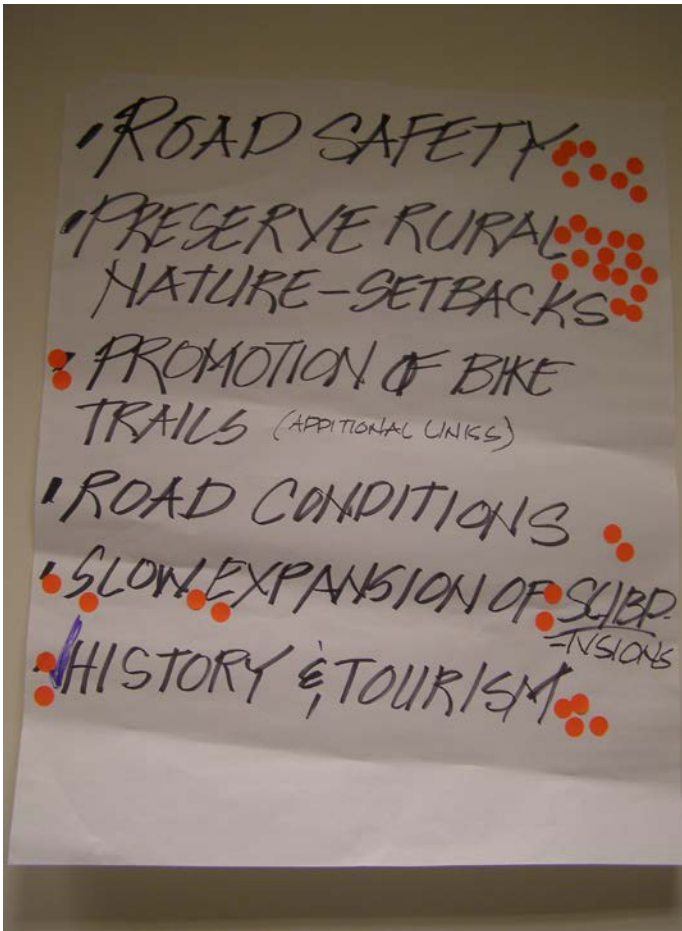 ROAD SAFETY
PRESERVE RURAL
NATURE-SETBACKS
PROMOTION OF BIKE
TRAILS (ADDITIONAL LINKS)
ROAD CONDITIONS
SLOW EXPANSION OF SUBD-
-IVSIONS
HISTORY & TOURISM